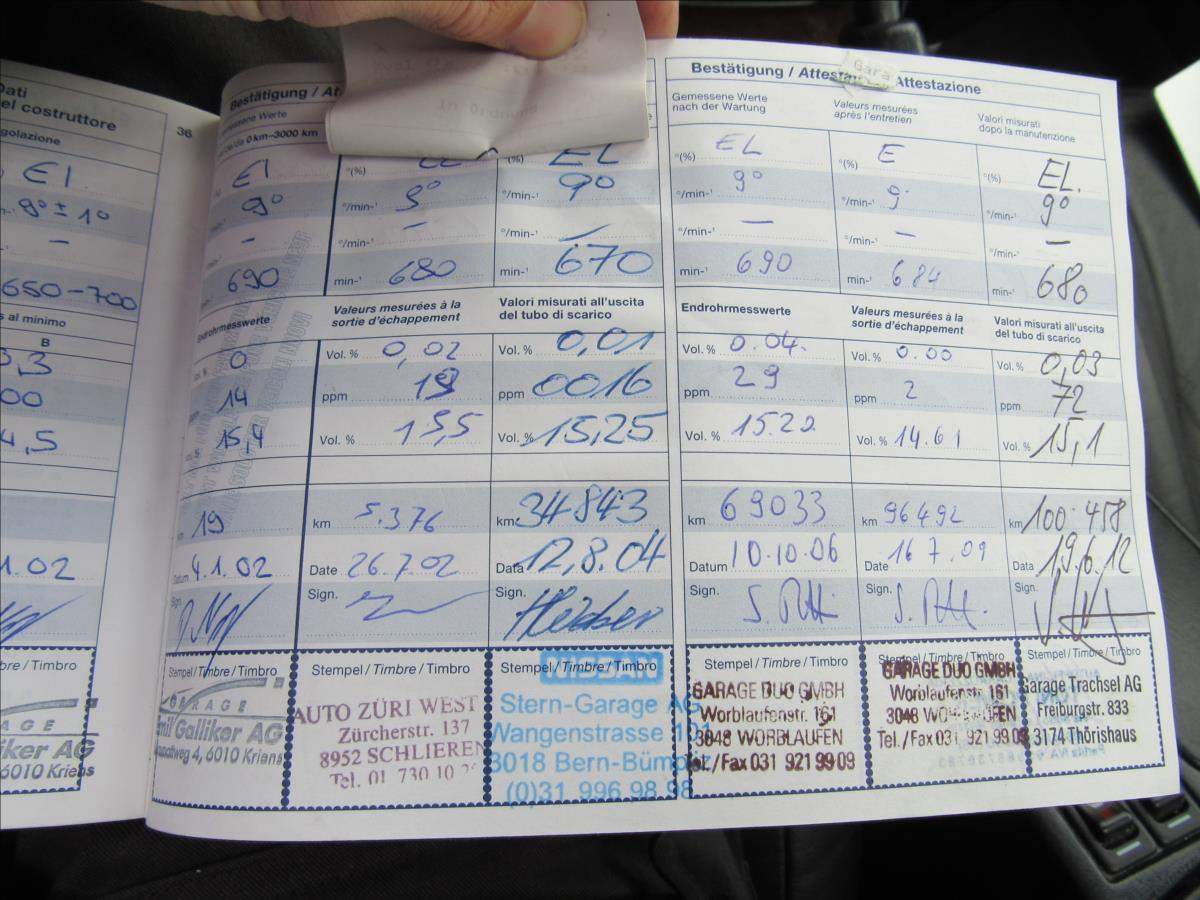 Dati
el costruttore
golazione
EI
9° ± 1°
–
650-700
s al minimo
B
3,3
00
4,5
1.02
bre / Timbro
AGE
liker AG
6010 Kriens
36
Bestätigung / At
emessene Werte
0 km–3000 km
EI
9°
–
690
Endrohrmesswerte
0
14
15,4
19
Datum 4.1.02
Sign.
Stempel / Timbre / Timbro
GARAGE
mil Galliker AG
weg 4, 6010 Kriens
°(%)
°/min-¹ 9°
°/min-¹ –
min-¹ 680
Valeurs mesurées à la
sortie d'échappement
Vol. % 0,02
ppm 18
Vol. % 15,5
km 5.376
Date 26.7.02
Sign.
Stempel / Timbre / Timbro
AUTO ZÜRI WEST
Zürcherstr. 137
8952 SCHLIEREN
Tel. 01 730 10
(%) EL
°/min-¹ 9°
°/min-¹ –
min-¹ 670
Valori misurati all'uscita
del tubo di scarico
Vol. % 0,01
ppm 0016
Vol. % 15,25
km 34843
Data 12.8.04
Sign.
Stempel / Timbre / Timbro
NISSAN
Stern-Garage AG
Wangenstrasse 1
3018 Bern-Bümpl
(0)31 996 98 98
Bestätigung / Attestation / Attestazione
Gara
Gemessene Werte
nach der Wartung
°(%) EL
°/min-¹ 9°
°/min-¹ –
min-¹ 690
Endrohrmesswerte
Vol. % 0.04.
ppm 29
Vol. % 15.22
km 69033
Datum 10.10.06
Sign.
Stempel / Timbre / Timbro
GARAGE DUO GMBH
Worblaufenstr. 161
3048 WORBLAUFEN
Tel./Fax 031 921 99 09
Valeurs mesurées
après l'entretien
°(%) E
°/min-¹ 9°
°/min-¹ –
min-¹ 684
Valeurs mesurées à la
sortie d'échappement
Vol. % 0.00
ppm 2
Vol. % 14.61
km 96492
Date 16 7.09
Sign.
Stempel / Timbre / Timbro
GARAGE DUO GMBH
Worblaufenstr. 161
3048 WORBLAUFEN
Tel./Fax 031 921 99 09
Valori misurati
dopo la manutenzione
°(%) EL.
°/min-¹ 9°
°/min-¹ –
min-¹ 680
Valori misurati all'uscita
del tubo di scarico
Vol. % 0,03
ppm 72
Vol. % 15,1
km 100'458
Data 19.6.12
Sign.
Stempel / Timbre / Timbro
Garage Trachsel AG
Freiburgstr. 833
3174 Thörishaus